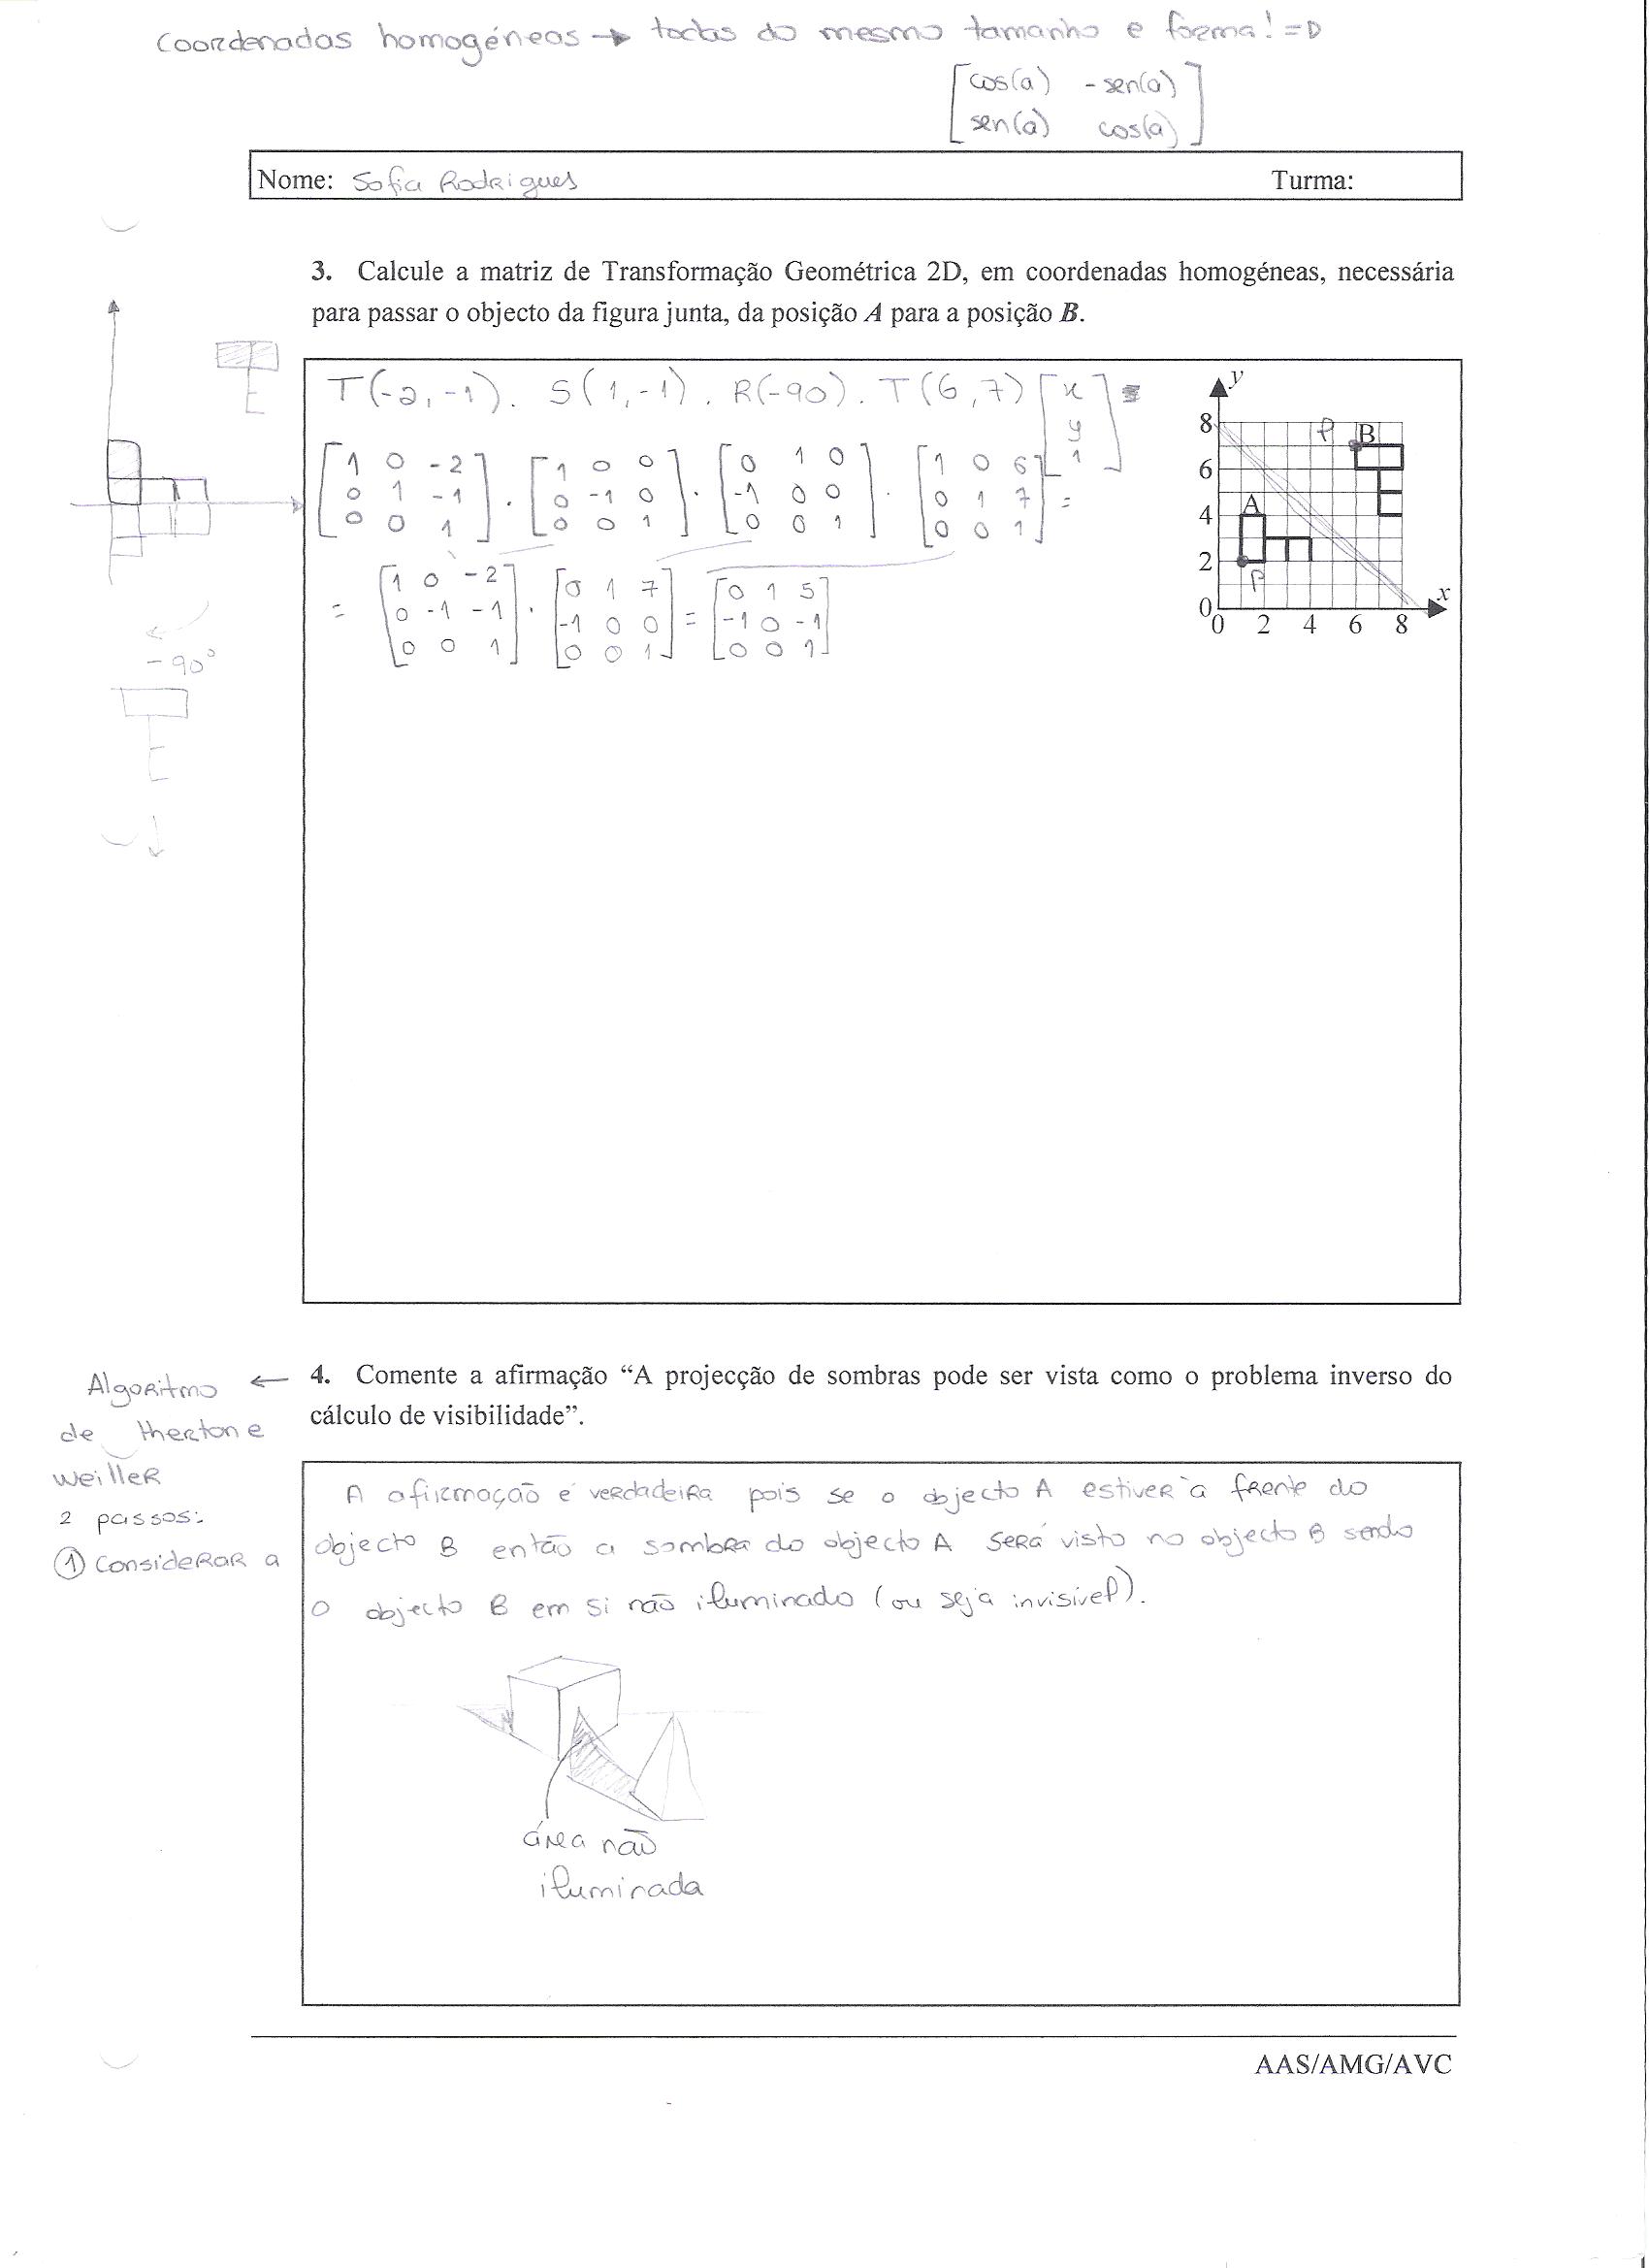 Coordenadas homogéneas → todas do mesmo tamanho e forma! =D
[cos(a) -sen(a)]
[sen(a) cos(a)]
Nome: Sofia Rodrigues Turma:
3. Calcule a matriz de Transformação Geométrica 2D, em coordenadas homogéneas, necessária
para passar o objecto da figura junta, da posição A para a posição B.
T(-2,-1). S(1,-1). R(-90). T(6,7) [x y 1] =
[1 0 -2] . [1 0 0] . [0 1 0] . [1 0 6]
[0 1 -1] [0 -1 0] [-1 0 0] [0 1 7] =
[0 0 1] [0 0 1] [0 0 1] [0 0 1]
= [1 0 -2] . [0 1 7] = [0 1 5]
[0 -1 -1] [-1 0 0] [-1 0 -1]
[0 0 1] [0 0 1] [0 0 1]
y
8
P B
6
A
4
2
P
0
x
0 2 4 6 8
-90°
4. Comente a afirmação “A projecção de sombras pode ser vista como o problema inverso do
cálculo de visibilidade”.
Algoritmo ←
de therton e
weiller
2 passos:
① Considerar a
A afirmação é verdadeira pois se o objecto A estiver à frente do
objecto B então a sombra do objecto A será visto no objecto B sendo
o objecto B em si não iluminado (ou seja invisível).
área não
iluminada
AAS/AMG/AVC